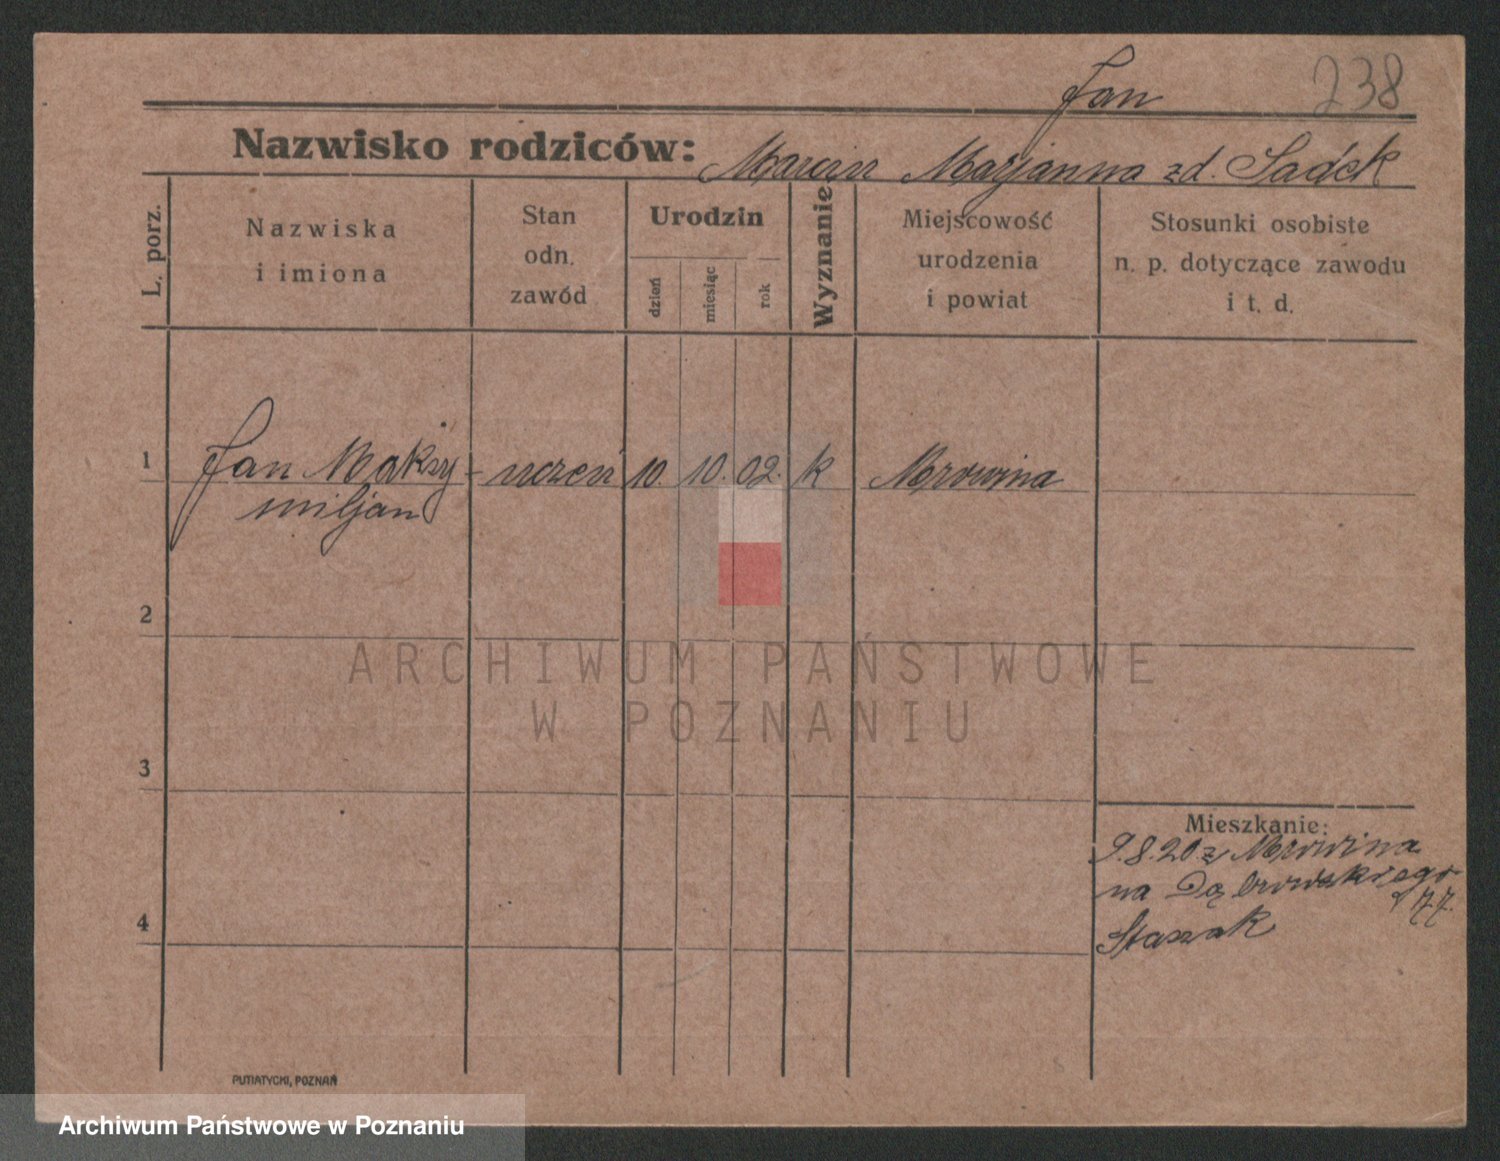 Jan
238
Nazwisko rodziców: Marcin Marjanna zd. Sadek
L. porz.
Nazwiska
i imiona
Stan
odn.
zawód
Urodzin
dzień
miesiąc
rok
Wyznanie
Miejscowość
urodzenia
i powiat
Stosunki osobiste
n. p. dotyczące zawodu
i t. d.
1 Jan Maksy- uczeń 10. 10. 02. k Mrowina
miljan
2
ARCHIWUM PAŃSTWOWE
W POZNANIU
3
Mieszkanie:
9.8.20 z Mrowina
na Dąbrowskiego
77.
4
Staszak
PUTIATYCKI, POZNAŃ
Archiwum Państwowe w Poznaniu